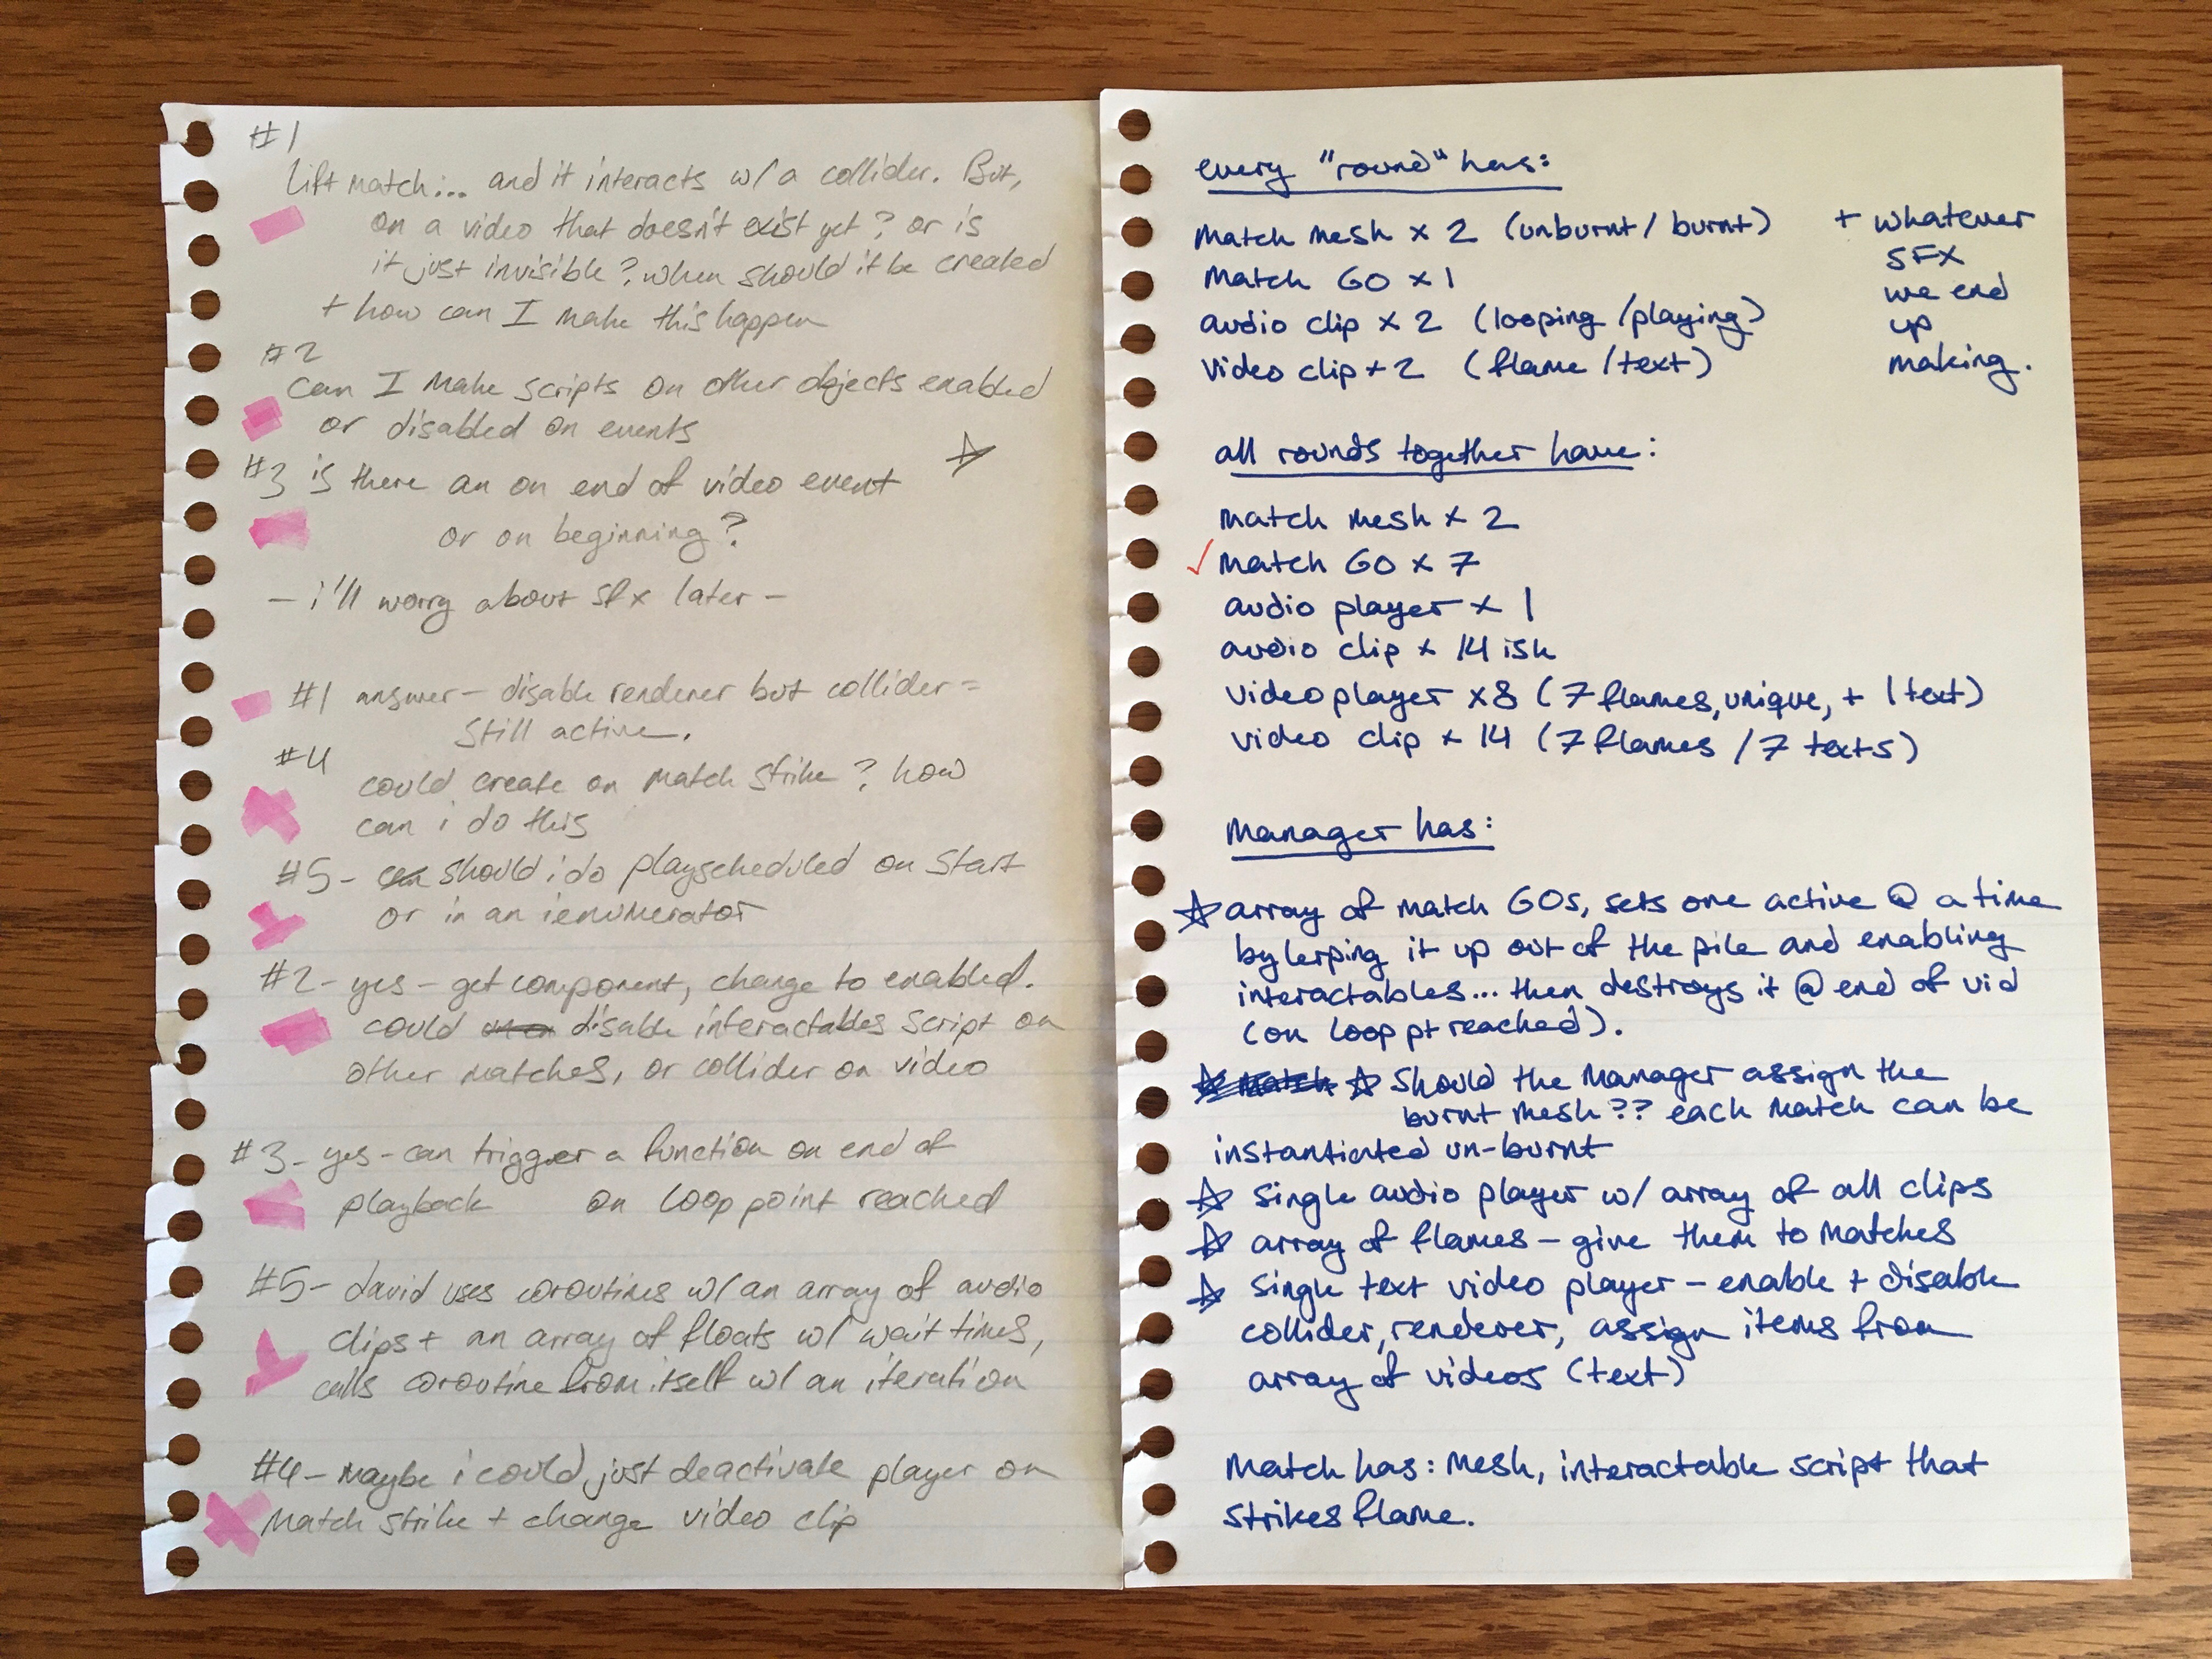 #1
Lift match... and it interacts w/ a collider. But,
on a video that doesn't exist yet? or is
it just invisible? when should it be created
+ how can I make this happen
#2
can I make scripts on other objects enabled
or disabled on events
#3 is there an on end of video event
or on beginning?
- i'll worry about sfx later -
#1 answer - disable renderer but collider =
still active.
#4
could create on match strike? how
can i do this
#5 - should i do playscheduled on start
or in an ienumerator
#2 - yes - get component, change to enabled.
could disable interactables script on
other matches, or collider on video
#3 - yes - can trigger a function on end of
playback on loop point reached
#5 - david uses coroutines w/ an array of audio
clips + an array of floats w/ wait times,
calls coroutine from itself w/ an iteration
#4 - maybe i could just deactivate player on
match strike + change video clip
every "round" has:
match mesh x 2 (unburnt / burnt)
match GO x 1
audio clip x 2 (looping / playing)
video clip x 2 (flame / text)
+ whatever
SFX
we end
up
making.
all rounds together have:
match mesh x 2
✓ match GO x 7
audio player x 1
audio clip x 14 ish
video player x 8 (7 flames, unique, + 1 text)
video clip x 14 (7 flames / 7 texts)
manager has:
☆ array of match GOs, sets one active @ a time
by lerping it up out of the pile and enabling
interactables... then destroys it @ end of vid
(on loop pt reached).
☆ match ☆ should the manager assign the
burnt mesh?? each match can be
instantiated un-burnt
☆ single audio player w/ array of all clips
☆ array of flames - give them to matches
☆ single text video player - enable + disable
collider, renderer, assign items from
array of videos (text)
match has: mesh, interactable script that
strikes flame.